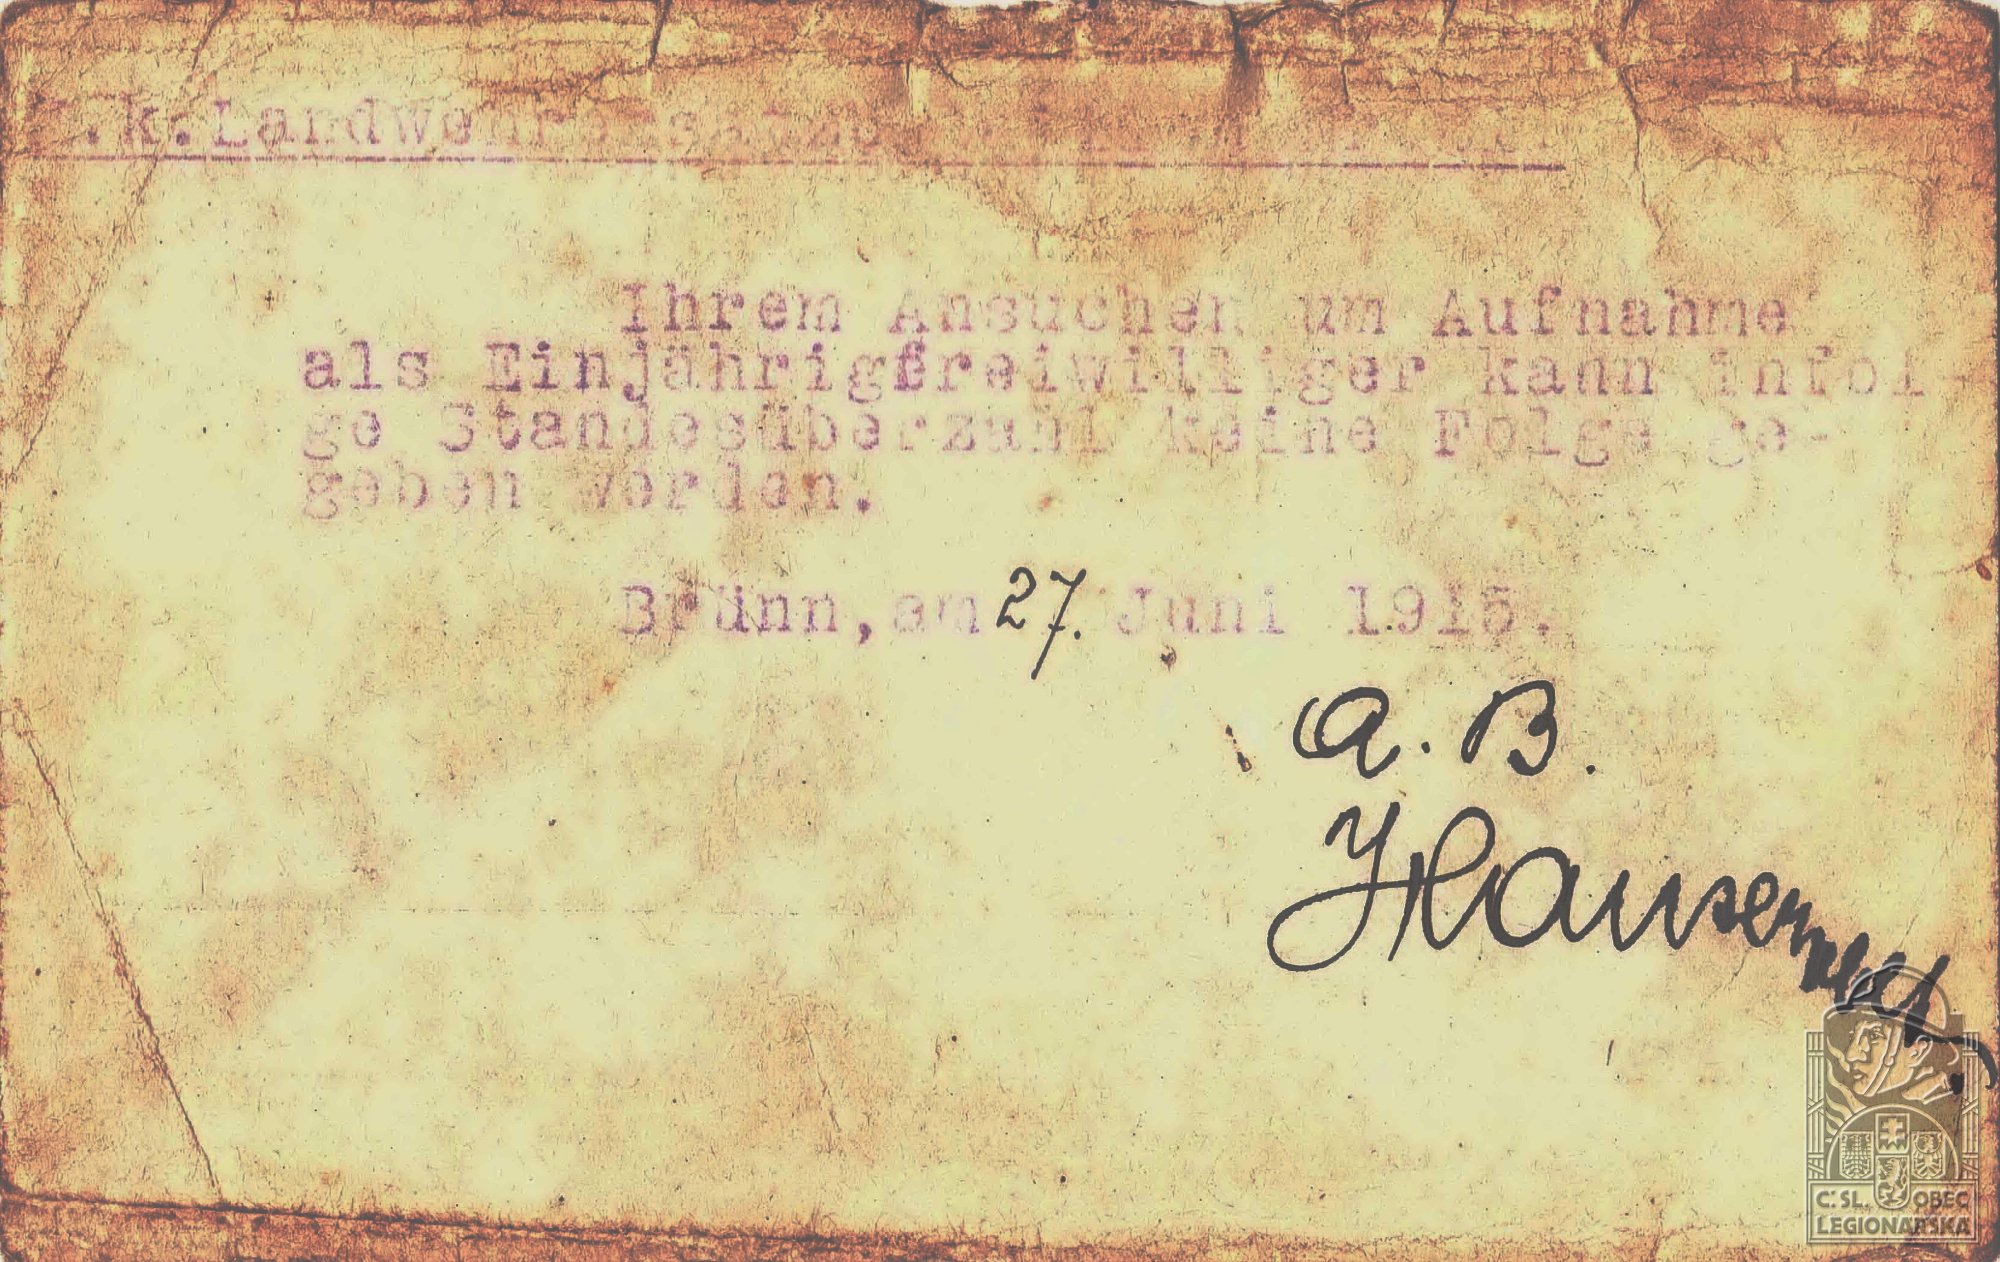 .k.Landwehr
Ihrem Ansuchen um Aufnahme
als Einjährigfreiwilliger kann infol
ge Standesüberzahl keine Folge ge-
geben werden.
Brünn, am 27. Juni 1915.
A. B.
Č. SL. OBEC
LEGIONÁŘSKÁ